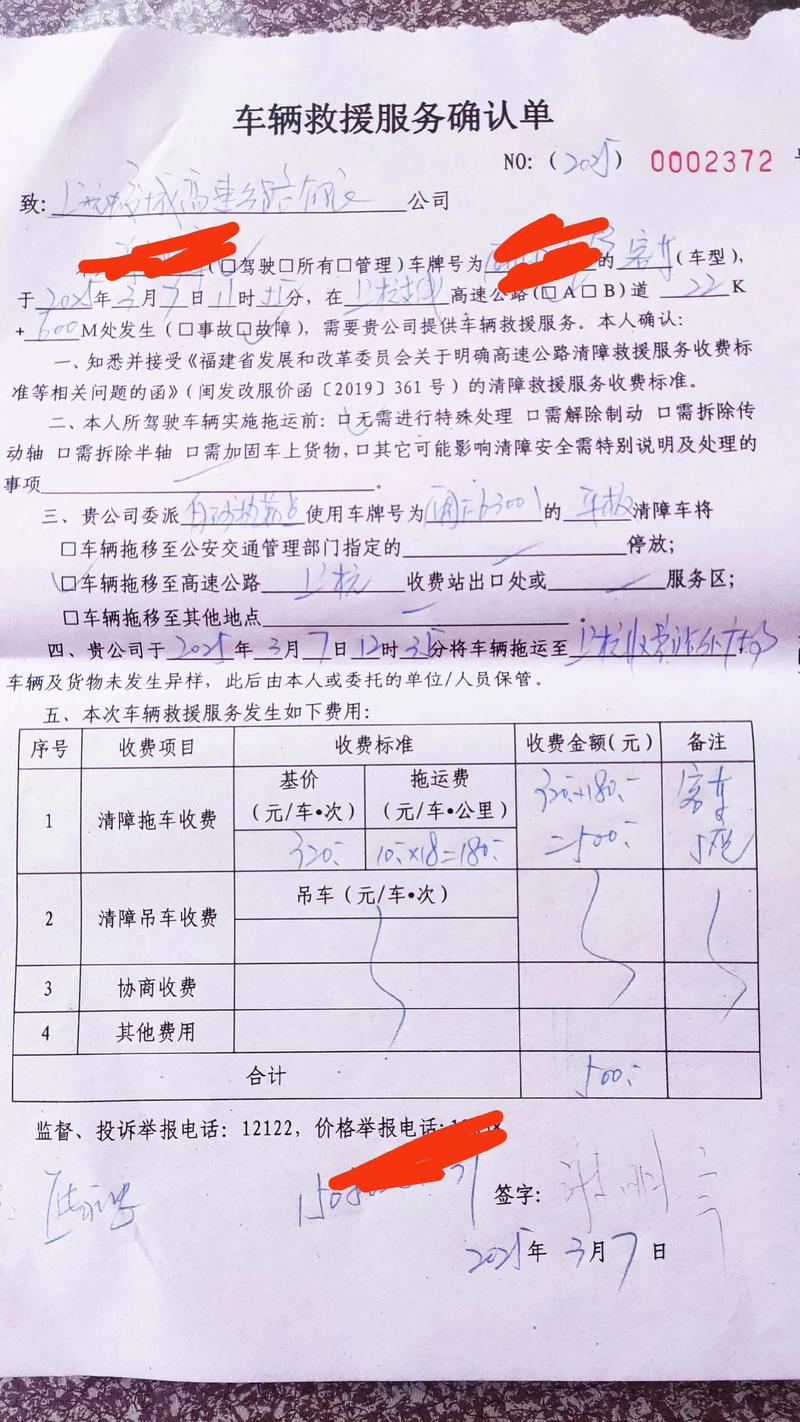 车辆救援服务确认单
NO:(2025) 0002372
致: 高速公路 公司
(□驾驶□所有□管理)车牌号为 的 客车 (车型),
于 2025 年 3 月 7 日 11 时 分,在 高速公路(□A□B)道 22 K
+ 600 M处发生(□事故□故障),需要贵公司提供车辆救援服务。本人确认:
一、知悉并接受《福建省发展和改革委员会关于明确高速公路清障救援服务收费标
准等相关问题的函》(闽发改服价函〔2019〕361号)的清障救援服务收费标准。
二、本人所驾驶车辆实施拖运前:□无需进行特殊处理 □需解除制动 □需拆除传
动轴 □需拆除半轴 □需加固车上货物,□其它可能影响清障安全需特别说明及处理的
事项 。
三、贵公司委派 使用车牌号为 的 清障车将
□车辆拖移至公安交通管理部门指定的 停放;
□车辆拖移至高速公路 上杭 收费站出口处或 服务区;
□车辆拖移至其他地点 。
四、贵公司于 2025 年 3 月 7 日 12 时 35 分将车辆拖运至 上杭收费站外广场
车辆及货物未发生异样,此后由本人或委托的单位/人员保管。
五、本次车辆救援服务发生如下费用:
序号 收费项目 收费标准 收费金额(元) 备注
基价 拖运费
(元/车•次) (元/车•公里)
1 清障拖车收费 320.- 10.-×18=180.- 320.-+180.- =500.- 客车
吊车(元/车•次)
2 清障吊车收费
3 协商收费
4 其他费用
合计 500.-
监督、投诉举报电话:12122,价格举报电话:
签字:
2025 年 3 月 7 日